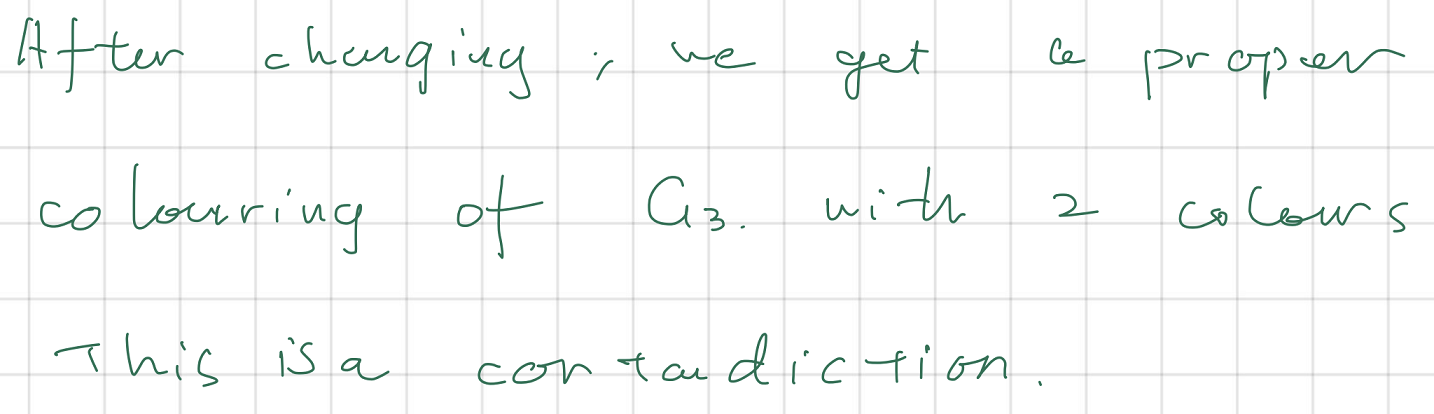 After changing, we get a proper
colouring of G₃. with 2 colours
This is a contadiction.